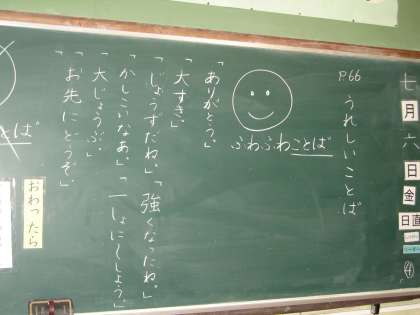 七月六日金
日直
④
P.66 うれしいことば
ふわふわことば
「ありがとう。」
「大すき。」
「じょうずだね。」「強くなったね。」
「かしこいなあ。」「一しょにしよう。」
「大じょうぶ。」
「お先にどうぞ。」
おわったら
とば